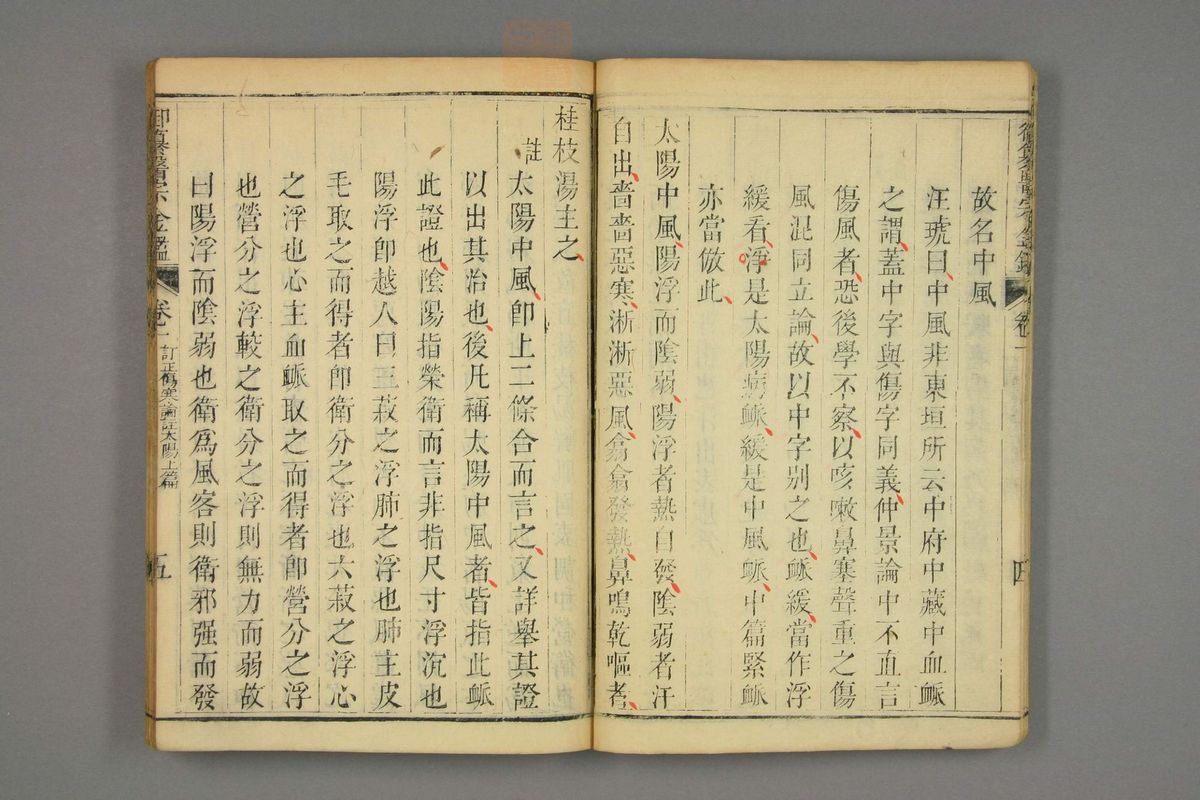 故名中風
汪琥曰中風非東垣所云中府中藏中血脈
之謂蓋中字與傷字同義仲景論中不直言
傷風者恐後學不察以咳嗽鼻塞聲重之傷
風混同立論故以中字别之也脈緩當作浮
緩看浮是太陽病脈緩是中風脈中篇緊脈
亦當倣此
太陽中風陽浮而陰弱陽浮者熱自發陰弱者汗
自出嗇嗇惡寒淅淅惡風翕翕發熱鼻鳴乾嘔者
四
桂枝湯主之
註太陽中風即上二條合而言之又詳舉其證
以出其治也後凡稱太陽中風者皆指此脈
此證也陰陽指榮衛而言非指尺寸浮沉也
陽浮即越人曰三菽之浮肺之浮也肺主皮
毛取之而得者即衛分之浮也六菽之浮心
之浮也心主血脈取之而得者即營分之浮
也營分之浮較之衛分之浮則無力而弱故
曰陽浮而陰弱也衛為風客則衛邪强而發
御纂醫宗金鑑 卷一 訂正傷寒論註太陽上篇 五